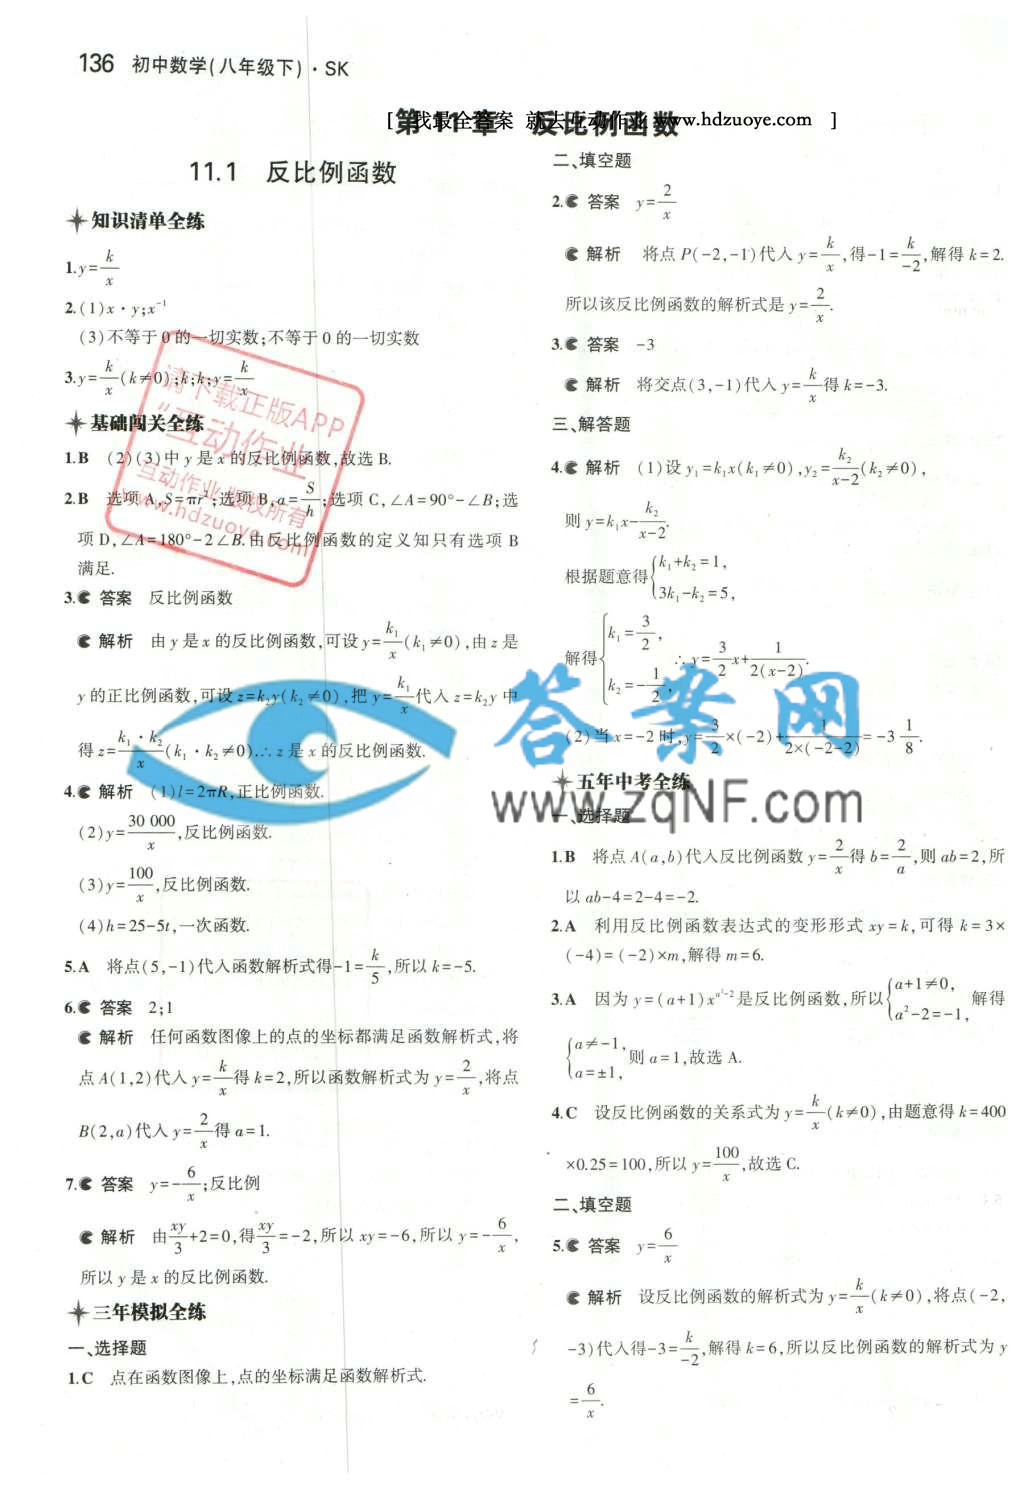 136 初中数学(八年级下)·SK
第11章 反比例函数
[ 我最全答案 就去互动作业 www.hdzuoye.com ]
11.1 反比例函数
知识清单全练
1.y=k/x
2.(1)x·y;x⁻¹
(3)不等于0的一切实数;不等于0的一切实数
3.y=k/x(k≠0);k;k;y=k/x
基础闯关全练
1.B (2)(3)中y是x的反比例函数,故选B.
2.B 选项A,S=πr²;选项B,a=S/h;选项C,∠A=90°-∠B;选
项D,∠A=180°-2∠B.由反比例函数的定义知只有选项B
满足.
3. 答案 反比例函数
解析 由y是x的反比例函数,可设y=k₁/x(k₁≠0),由z是
y的正比例函数,可设z=k₂y(k₂≠0),把y=k₁/x代入z=k₂y中
得z=k₁·k₂/x(k₁·k₂≠0).∴z是x的反比例函数.
4. 解析 (1)l=2πR,正比例函数.
(2)y=30 000/x,反比例函数.
(3)y=100/x,反比例函数.
(4)h=25-5t,一次函数.
5.A 将点(5,-1)代入函数解析式得-1=k/5,所以k=-5.
6. 答案 2;1
解析 任何函数图像上的点的坐标都满足函数解析式,将
点A(1,2)代入y=k/x得k=2,所以函数解析式为y=2/x,将点
B(2,a)代入y=2/x得a=1.
7. 答案 y=-6/x;反比例
解析 由xy/3+2=0,得xy/3=-2,所以xy=-6,所以y=-6/x,
所以y是x的反比例函数.
三年模拟全练
一、选择题
1.C 点在函数图像上,点的坐标满足函数解析式.
二、填空题
2. 答案 y=2/x
解析 将点P(-2,-1)代入y=k/x,得-1=k/-2,解得k=2.
所以该反比例函数的解析式是y=2/x.
3. 答案 -3
解析 将交点(3,-1)代入y=k/x得k=-3.
三、解答题
4. 解析 (1)设y₁=k₁x(k₁≠0),y₂=k₂/x-2(k₂≠0),
则y=k₁x-k₂/x-2.
根据题意得{k₁+k₂=1,
3k₁-k₂=5,
解得{k₁=3/2,
k₂=-1/2, ∴y=3/2x+1/2(x-2).
(2)当x=-2时,y=3/2×(-2)+1/2×(-2-2)=-3 1/8.
五年中考全练
一、选择题
1.B 将点A(a,b)代入反比例函数y=2/x得b=2/a,则ab=2,所
以ab-4=2-4=-2.
2.A 利用反比例函数表达式的变形形式xy=k,可得k=3×
(-4)=(-2)×m,解得m=6.
3.A 因为y=(a+1)x^(a²-2)是反比例函数,所以{a+1≠0,
a²-2=-1, 解得
{a≠-1,
a=±1, 则a=1,故选A.
4.C 设反比例函数的关系式为y=k/x(k≠0),由题意得k=400
×0.25=100,所以y=100/x,故选C.
二、填空题
5. 答案 y=6/x
解析 设反比例函数的解析式为y=k/x(k≠0),将点(-2,
-3)代入得-3=k/-2,解得k=6,所以反比例函数的解析式为y
=6/x.
请下载正版APP
“互动作业”
互动作业·版权所有
www.hdzuoye.com
答案网
www.zqNF.com